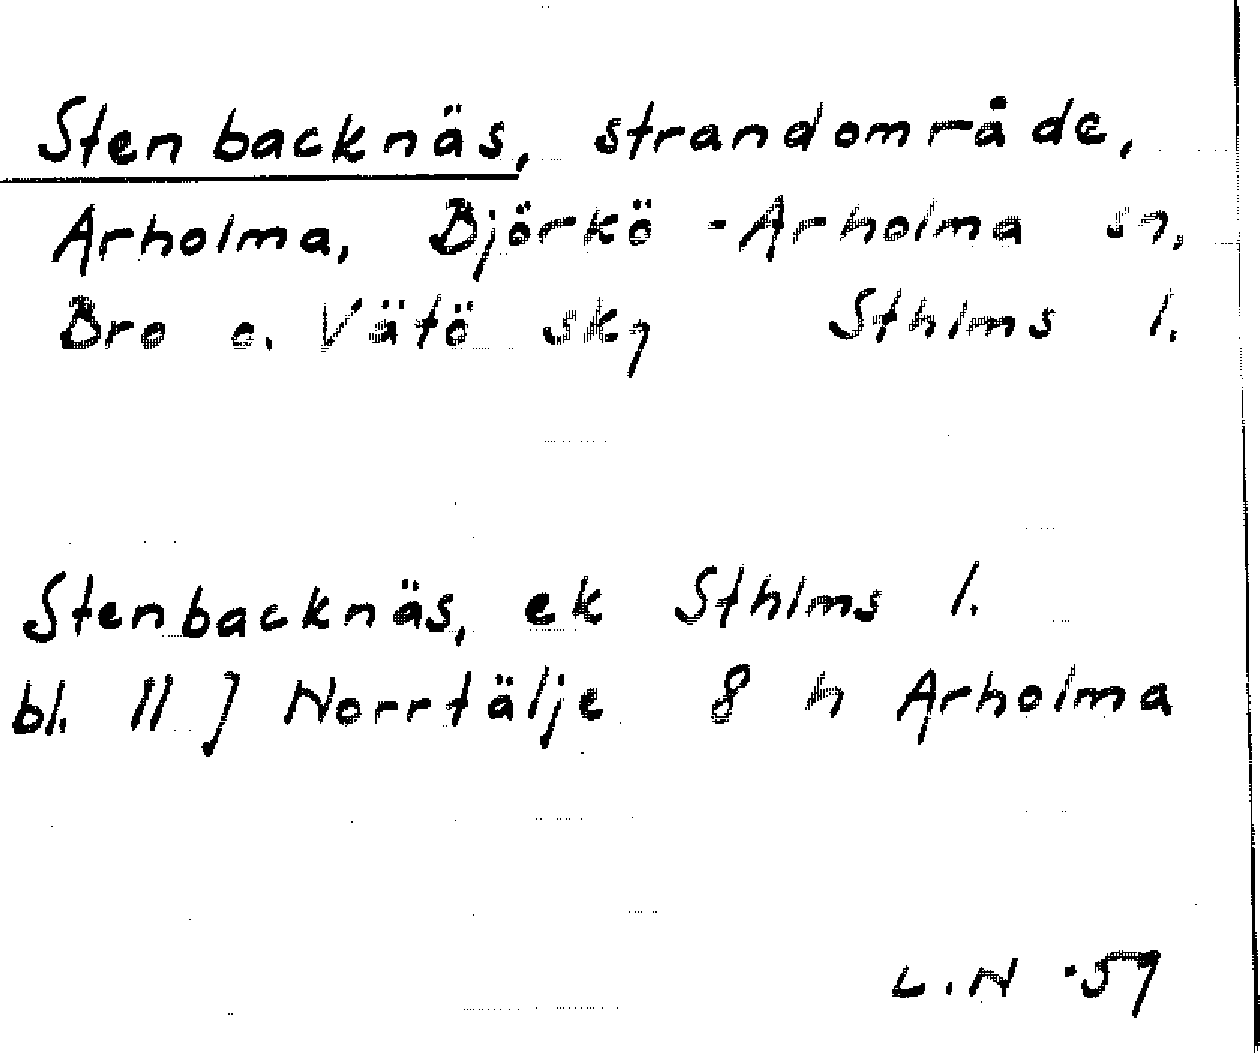 Stenbacknäs, strandområde,
Arholma, Björkö-Arholma sn,
Bro o. Vätö sky Sthlms l.
Stenbacknäs, ek Sthlms l.
bl. 11 J Norrtälje 8 h Arholma
L.N -57